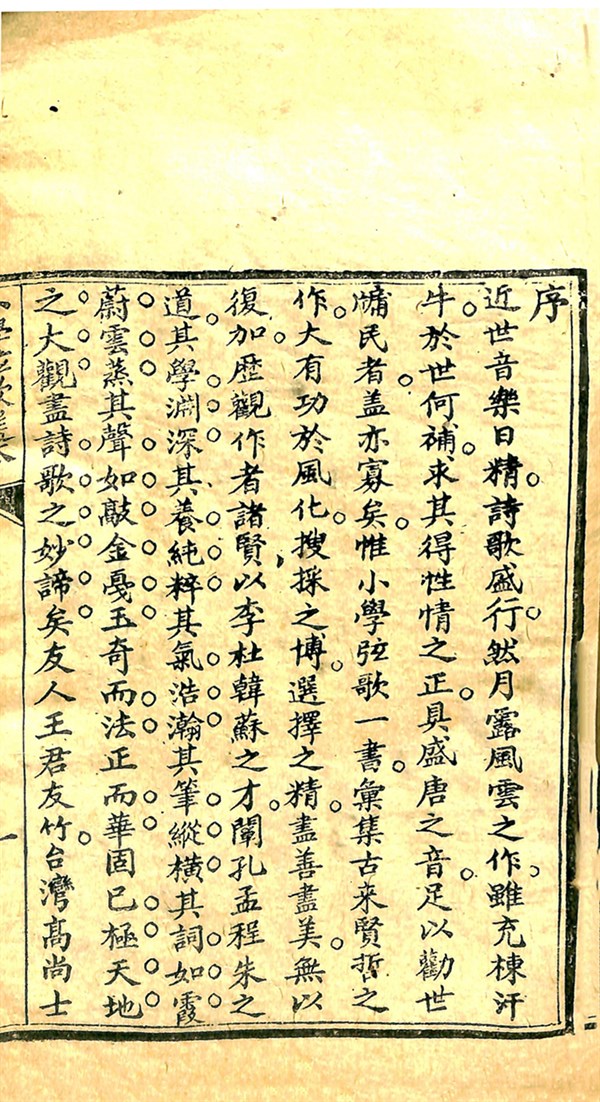 序
近世音樂日精詩歌盛行然月露風雲之作雖充棟汗
牛於世何補求其得性情之正具盛唐之音足以勸世
牖民者盖亦寡矣惟小學弦歌一書彙集古来賢哲之
作大有功於風化搜採之博選擇之精盡善盡美無以
復加歷觀作者諸賢以李杜韓蘇之才闡孔孟程朱之
道其學淵深其養純粹其氣浩瀚其筆縱橫其詞如霞
蔚雲蒸其聲如敲金戞玉奇而法正而華固已極天地
之大觀盡詩歌之妙諦矣友人王君友竹台灣髙尚士